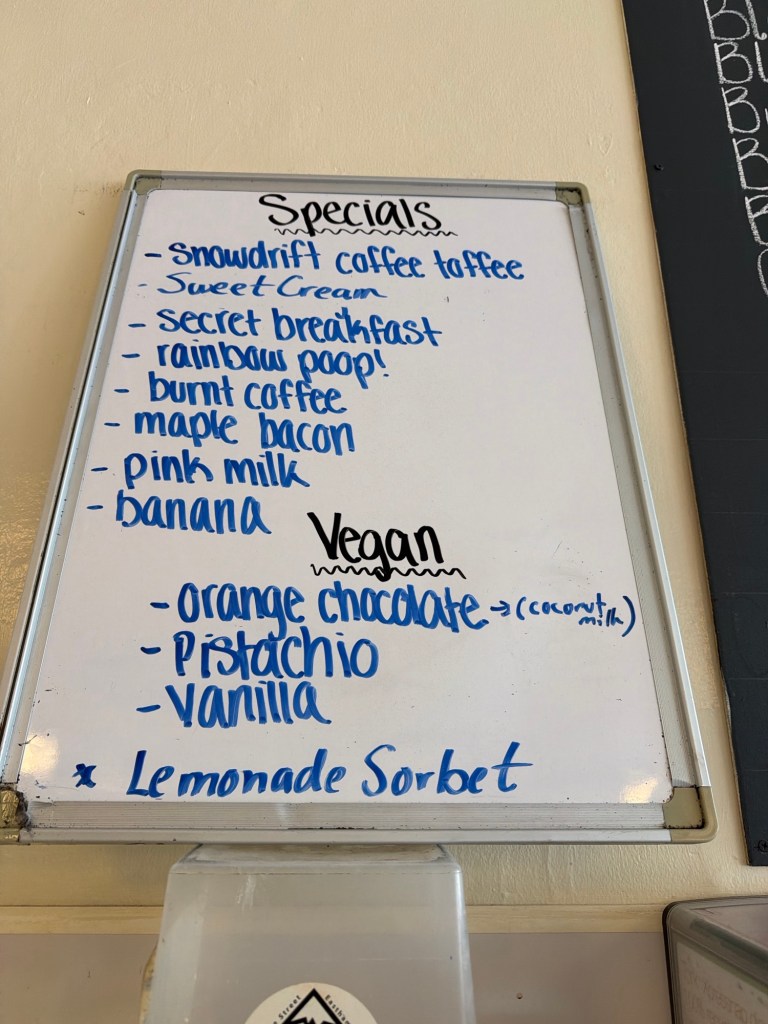 Specials
- snowdrift coffee toffee
- Sweet Cream
- secret breakfast
- rainbow poop!
- burnt coffee
- maple bacon
- pink milk
- banana
Vegan
- orange chocolate → (coconut milk)
- Pistachio
- Vanilla
* Lemonade Sorbet
Street